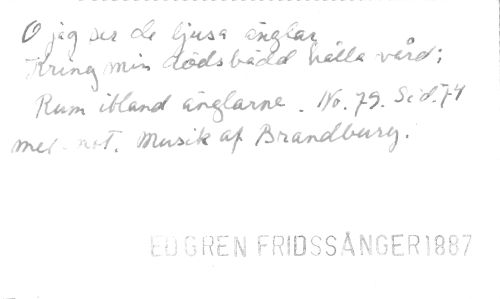 O jag ser de ljusa änglar
Kring min dödsbädd hålla vård;
Rum ibland änglarne. No. 79. Sid. 74
mel. not. Musik af Brandburg.
EDGREN FRIDSSÅNGER 1887